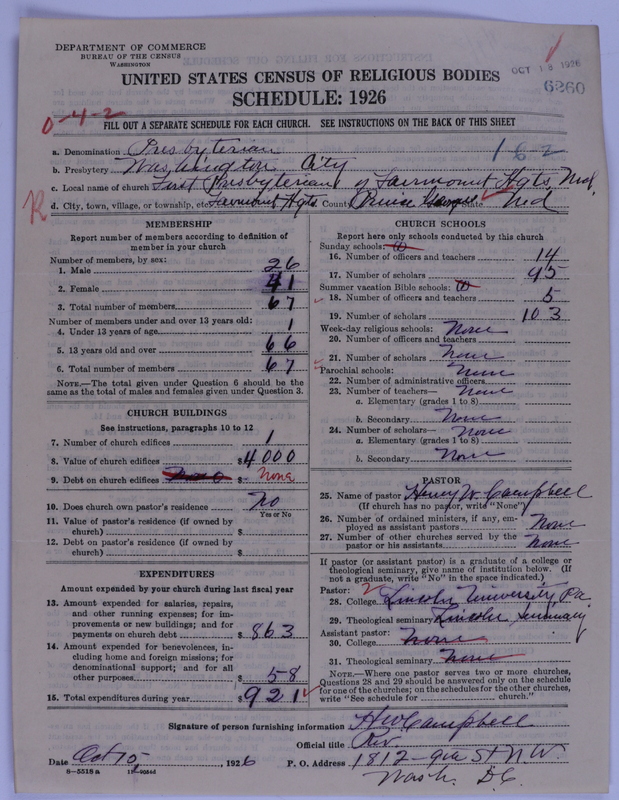 DEPARTMENT OF COMMERCE
BUREAU OF THE CENSUS
WASHINGTON
OCT 18 1926
6260
UNITED STATES CENSUS OF RELIGIOUS BODIES
SCHEDULE: 1926
0-4-2
FILL OUT A SEPARATE SCHEDULE FOR EACH CHURCH. SEE INSTRUCTIONS ON THE BACK OF THIS SHEET
a. Denomination Presbyterian
162
b. Presbytery Washington City
c. Local name of church First Presbyterian of Fairmount Hgts Md.
d. City, town, village, or township, etc. Fairmount Hgts County Prince George State Md
R
MEMBERSHIP
Report number of members according to definition of member in your church
Number of members, by sex:
1. Male 26
2. Female 41
3. Total number of members 67
Number of members under and over 13 years old:
4. Under 13 years of age 1
5. 13 years old and over 66
6. Total number of members 67
NOTE.—The total given under Question 6 should be the same as the total of males and females given under Question 3.
CHURCH BUILDINGS
See instructions, paragraphs 10 to 12
7. Number of church edifices 1
8. Value of church edifices $4000
9. Debt on church edifices $ None
10. Does church own pastor's residence no
Yes or No
11. Value of pastor's residence (if owned by
church) $
12. Debt on pastor's residence (if owned by
church) $
EXPENDITURES
Amount expended by your church during last fiscal year
13. Amount expended for salaries, repairs,
and other running expenses; for im-
provements or new buildings; and for
payments on church debt $ 863
14. Amount expended for benevolences, in-
cluding home and foreign missions; for
denominational support; and for all
other purposes $ 58
15. Total expenditures during year $ 921
CHURCH SCHOOLS
Report here only schools conducted by this church
Sunday schools: (1)
16. Number of officers and teachers 14
17. Number of scholars 95
Summer vacation Bible schools: (1)
18. Number of officers and teachers 5
19. Number of scholars 103
Week-day religious schools: None
20. Number of officers and teachers
21. Number of scholars None
Parochial schools: None
22. Number of administrative officers
23. Number of teachers— None
a. Elementary (grades 1 to 8)
b. Secondary None
24. Number of scholars— None
a. Elementary (grades 1 to 8)
b. Secondary None
PASTOR
25. Name of pastor Henry W. Campbell
(If church has no pastor, write "None")
26. Number of ordained ministers, if any, em-
ployed as assistant pastors None
27. Number of other churches served by the
pastor or his assistants None
If pastor (or assistant pastor) is a graduate of a college or
theological seminary, give name of institution below. (If
not a graduate, write "No" in the space indicated.)
Pastor:
28. College Lincoln University Pa
29. Theological seminary Lincoln Seminary
Assistant pastor:
30. College none
31. Theological seminary none
NOTE.—Where one pastor serves two or more churches,
Questions 28 and 29 should be answered only on the schedule
for one of the churches; on the schedules for the other churches,
write "See schedule for church."
Signature of person furnishing information H W Campbell
Official title Rev
Date Oct 15, 1926 P. O. Address 1812-9th St N.W.
Wash. D.C.
8-5518 a